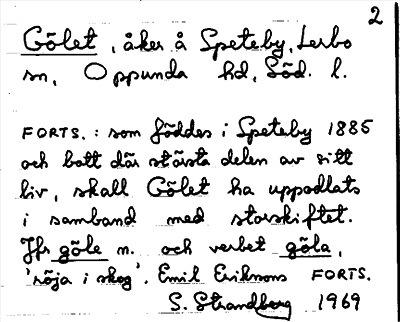 2
Gölet, åker å Speteby, Lerbo
sn, Oppunda hd, Söd. l.
FORTS.: som föddes i Speteby 1885
och bott där största delen av sitt
liv, skall Gölet ha uppodlats
i samband med storskiftet.
Jfr göle n. och verbet göla,
'röja i skog'. Emil Eriksons FORTS.
S. Strandberg 1969